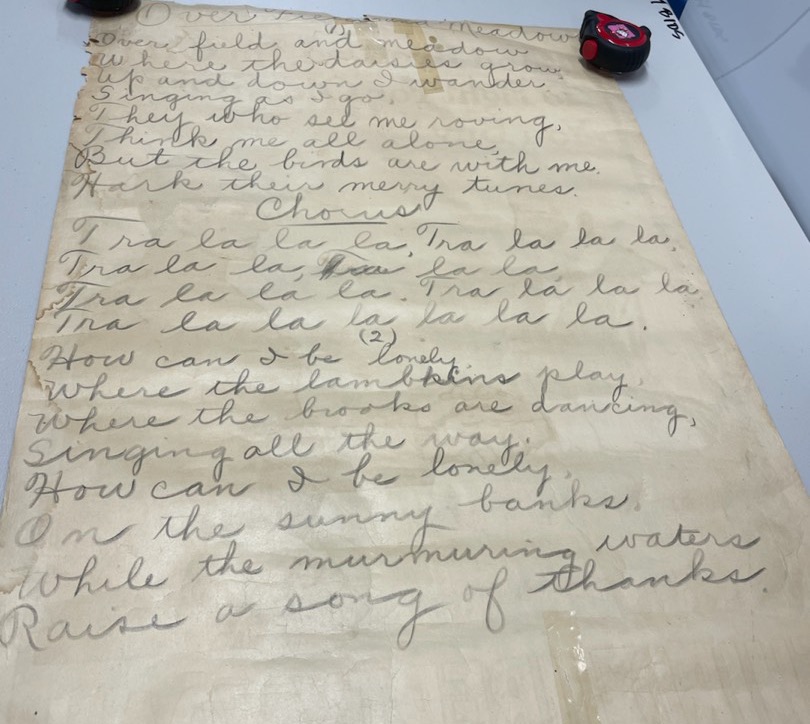 Over Field and Meadow
(1)
Over field and meadow
Where the daisies grow
Up and down I wander
Singing as I go.
They who see me roving,
Think me all alone,
But the birds are with me.
Hark their merry tunes.
Chorus
Tra la la la, Tra la la la,
Tra la la, Tra la la
Tra la la la. Tra la la la
Tra la la la la la la.
(2)
How can I be lonely,
Where the lambkins play,
Where the brooks are dancing,
Singing all the way.
How can I be lonely,
On the sunny banks.
While the murmuring waters
Raise a song of thanks.